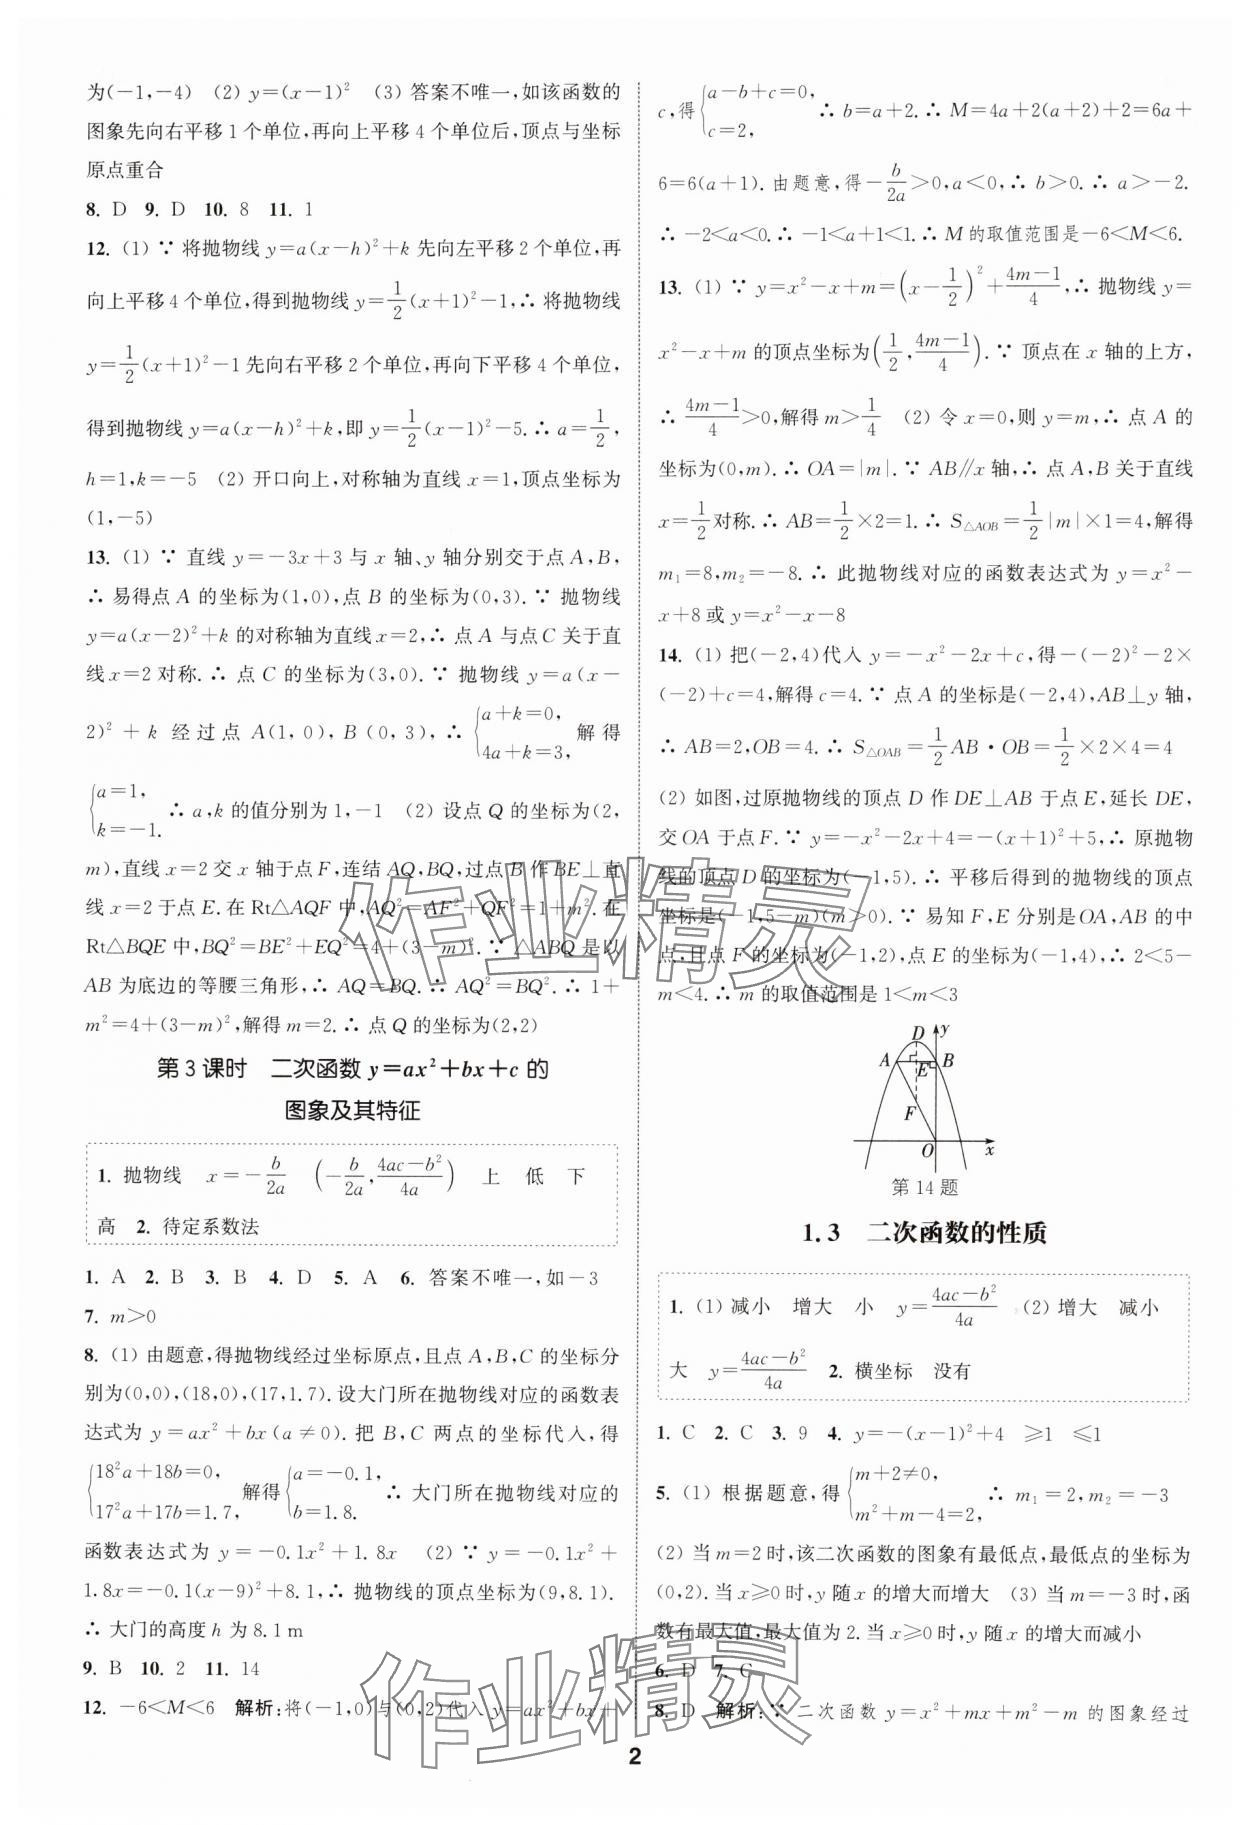 为(－1,－4)　(2) y＝(x－1)²　(3) 答案不唯一,如该函数的
图象先向右平移 1 个单位,再向上平移 4 个单位后,顶点与坐标
原点重合
8. D　9. D　10. 8　11. 1
12. (1) ∵ 将抛物线 y＝a(x－h)²＋k 先向左平移 2 个单位,再
向上平移 4 个单位,得到抛物线 y＝1/2(x＋1)²－1,∴ 将抛物线
y＝1/2(x＋1)²－1 先向右平移 2 个单位,再向下平移 4 个单位,
得到抛物线 y＝a(x－h)²＋k,即 y＝1/2(x－1)²－5. ∴ a＝1/2,
h＝1,k＝－5　(2) 开口向上,对称轴为直线 x＝1,顶点坐标为
(1,－5)
13. (1) ∵ 直线 y＝－3x＋3 与 x 轴、y 轴分别交于点 A,B,
∴ 易得点 A 的坐标为(1,0),点 B 的坐标为(0,3). ∵ 抛物线
y＝a(x－2)²＋k 的对称轴为直线 x＝2,∴ 点 A 与点 C 关于直
线 x＝2 对称. ∴ 点 C 的坐标为(3,0). ∵ 抛物线 y＝a(x－
2)²＋k 经过点 A(1,0),B(0,3),∴ {a＋k＝0, 4a＋k＝3, 解得
{a＝1, k＝－1. ∴ a,k 的值分别为 1,－1　(2) 设点 Q 的坐标为(2,
m),直线 x＝2 交 x 轴于点 F,连结 AQ,BQ,过点 B 作 BE⊥直
线 x＝2 于点 E. 在 Rt△AQF 中,AQ²＝AF²＋QF²＝1＋m². 在
Rt△BQE 中,BQ²＝BE²＋EQ²＝4＋(3－m)². ∵ △ABQ 是以
AB 为底边的等腰三角形,∴ AQ＝BQ. ∴ AQ²＝BQ². ∴ 1＋
m²＝4＋(3－m)²,解得 m＝2. ∴ 点 Q 的坐标为(2,2)
第 3 课时　二次函数 y＝ax²＋bx＋c 的
图象及其特征
1. 抛物线　x＝－b/2a　(－b/2a, (4ac－b²)/4a)　上　低　下
高　2. 待定系数法
1. A　2. B　3. B　4. D　5. A　6. 答案不唯一,如－3
7. m＞0
8. (1) 由题意,得抛物线经过坐标原点,且点 A,B,C 的坐标分
别为(0,0),(18,0),(17,1.7). 设大门所在抛物线对应的函数表
达式为 y＝ax²＋bx(a≠0). 把 B,C 两点的坐标代入,得
{18²a＋18b＝0, 17²a＋17b＝1.7, 解得 {a＝－0.1, b＝1.8. ∴ 大门所在抛物线对应的
函数表达式为 y＝－0.1x²＋1.8x　(2) ∵ y＝－0.1x²＋
1.8x＝－0.1(x－9)²＋8.1,∴ 抛物线的顶点坐标为(9,8.1).
∴ 大门的高度 h 为 8.1 m
9. B　10. 2　11. 14
12. －6＜M＜6　解析:将(－1,0)与(0,2)代入 y＝ax²＋bx＋
c,得 {a－b＋c＝0, c＝2, ∴ b＝a＋2. ∴ M＝4a＋2(a＋2)＋2＝6a＋
6＝6(a＋1). 由题意,得－b/2a＞0,a＜0,∴ b＞0. ∴ a＞－2.
∴ －2＜a＜0. ∴ －1＜a＋1＜1. ∴ M 的取值范围是－6＜M＜6.
13. (1) ∵ y＝x²－x＋m＝(x－1/2)²＋(4m－1)/4,∴ 抛物线 y＝
x²－x＋m 的顶点坐标为(1/2, (4m－1)/4). ∵ 顶点在 x 轴的上方,
∴ (4m－1)/4＞0,解得 m＞1/4　(2) 令 x＝0,则 y＝m,∴ 点 A 的
坐标为(0,m). ∴ OA＝|m|. ∵ AB∥x 轴,∴ 点 A,B 关于直线
x＝1/2对称. ∴ AB＝1/2×2＝1. ∴ S△AOB＝1/2|m|×1＝4,解得
m₁＝8,m₂＝－8. ∴ 此抛物线对应的函数表达式为 y＝x²－
x＋8 或 y＝x²－x－8
14. (1) 把(－2,4)代入 y＝－x²－2x＋c,得－(－2)²－2×
(－2)＋c＝4,解得 c＝4. ∵ 点 A 的坐标是(－2,4),AB⊥y 轴,
∴ AB＝2,OB＝4. ∴ S△OAB＝1/2AB·OB＝1/2×2×4＝4
(2) 如图,过原抛物线的顶点 D 作 DE⊥AB 于点 E,延长 DE,
交 OA 于点 F. ∵ y＝－x²－2x＋4＝－(x＋1)²＋5,∴ 原抛物
线的顶点 D 的坐标为(－1,5). ∴ 平移后得到的抛物线的顶点
坐标是(－1,5－m)(m＞0). ∵ 易知 F,E 分别是 OA,AB 的中
点,且点 F 的坐标为(－1,2),点 E 的坐标为(－1,4),∴ 2＜5－
m＜4. ∴ m 的取值范围是 1＜m＜3
D y
A E B
F
O x
第 14 题
1.3　二次函数的性质
1. (1) 减小　增大　小　y＝(4ac－b²)/4a　(2) 增大　减小
大　y＝(4ac－b²)/4a　2. 横坐标　没有
1. C　2. C　3. 9　4. y＝－(x－1)²＋4　≥1　≤1
5. (1) 根据题意,得 {m＋2≠0, m²＋m－4＝2, ∴ m₁＝2,m₂＝－3
(2) 当 m＝2 时,该二次函数的图象有最低点,最低点的坐标为
(0,2). 当 x≥0 时,y 随 x 的增大而增大　(3) 当 m＝－3 时,函
数有最大值,最大值为 2. 当 x≥0 时,y 随 x 的增大而减小
6. D　7. C
8. D　解析:∵ 二次函数 y＝x²＋mx＋m²－m 的图象经过
2
作业精灵
作业精灵